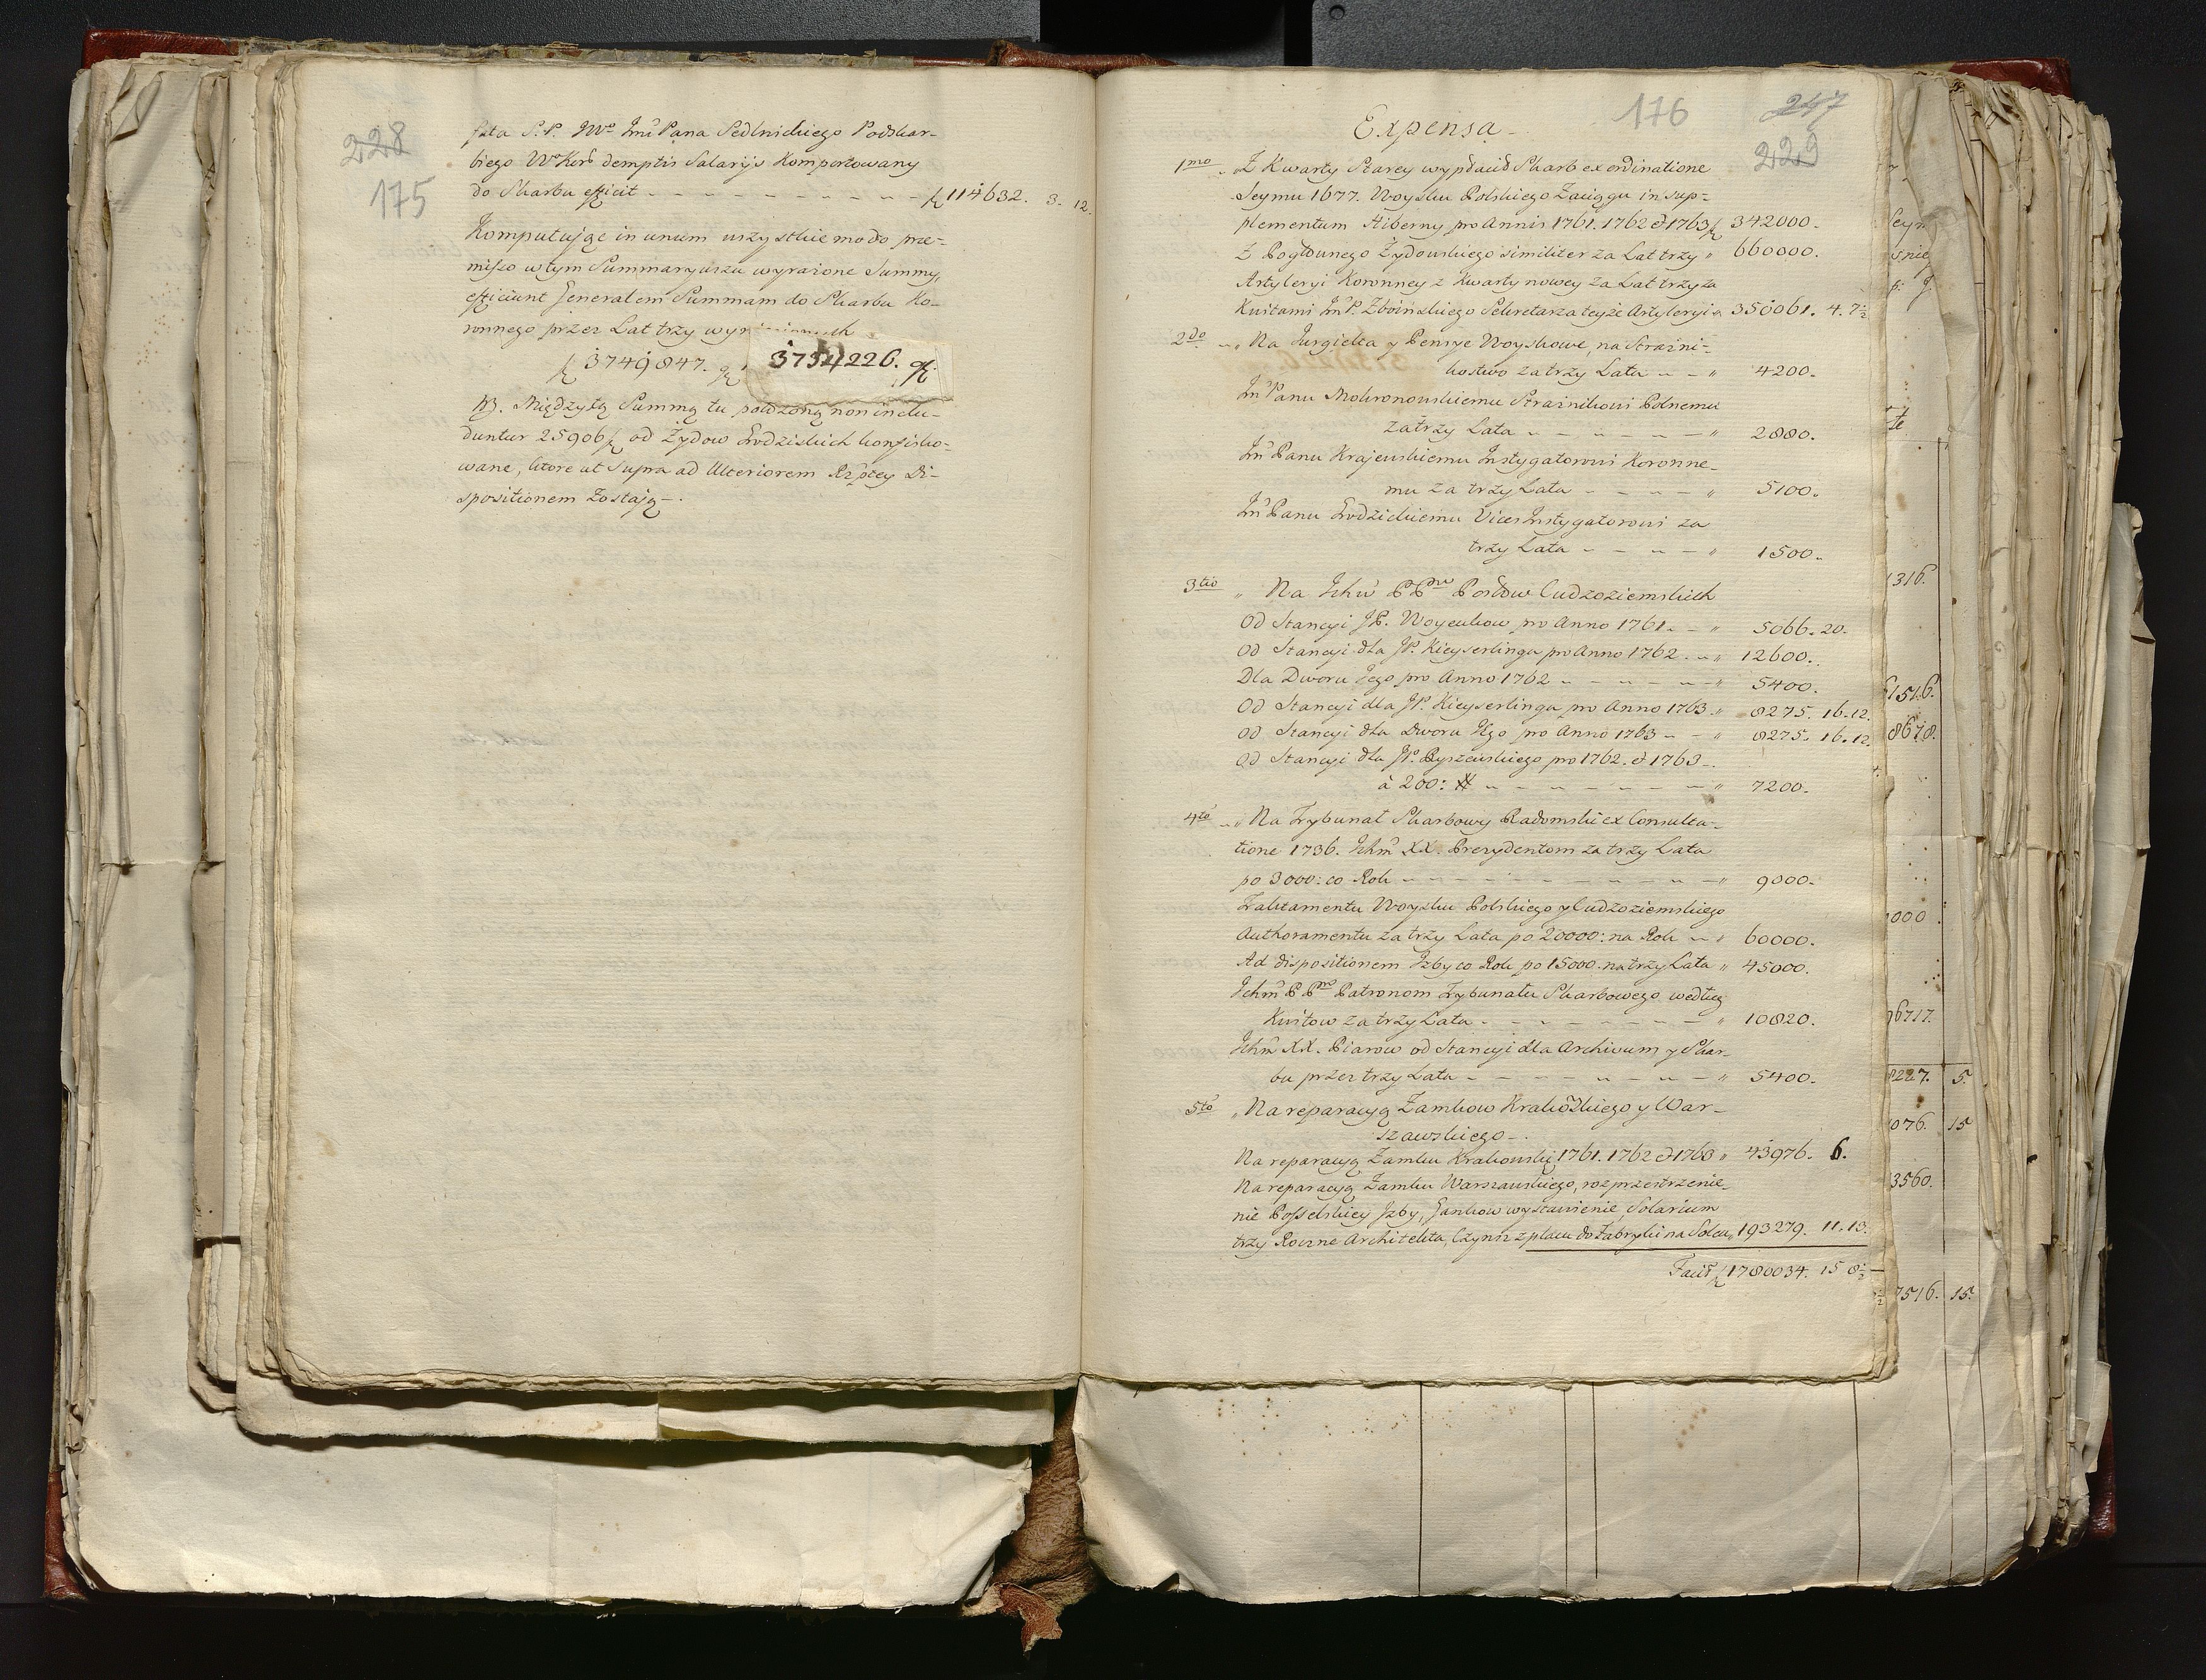 228
175
fata S.P. JWo Jmć Pana Sedlnickiego Podskar-
biego WoKor demptis Salarijs Komportowany
do Skarbu efficit 114632. 3. 12.
Komputując in unum wszystkie modo præ-
misso w tym Summaryuszu wyrażone Summy,
efficiunt Generalem Summam do Skarbu Ko-
ronnego przez Lat trzy
3749847.
3754226. gr.
NB. Między tą Summą tu położoną non inclu-
duntur 25906 od Żydow Grodziskich konfisko-
wane, ktore ut Supra ad Ulteriorem Rzptey Di-
spositionem zostają.
176
247
229
Expensa
1mo Z Kwarty Starey wypłacił Skarb ex ordinatione
Seymu 1677. Woysku Polskiego Zaciągu in sup-
plementum Hiberny pro Annis 1761. 1762 & 1763 342000.
Z Pogłównego Żydowskiego similiter za Lat trzy 660000.
Artyleryi Koronney z Kwarty nowey za Lat trzy za
Kwitami Jmć P. Zboińskiego Sekretarza teyże Artyleryi 350061. 4. 7½
2do Na Jurgielta y Pensye Woyskowe, na Strażni-
kostwo za trzy Lata 4200.
Jmć Panu Mokronowskiemu Strażnikowi Polnemu
za trzy Lata 2880.
Jmć Panu Krajewskiemu Instygatorowi Koronne-
mu za trzy Lata 5100.
Jmć Panu Grodzickiemu Vices Instygatorowi za
trzy Lata 1500.
3tio Na Ichm PPnw Posłow Cudzoziemskich
Od Stancyi JP. Woyeukow pro Anno 1761. 5066. 20.
Od Stancyi dla JP. Kieyserlinga pro Anno 1762. 12600.
Dla Dworu Jego pro Anno 1762 5400.
Od Stancyi dla JP. Kieyserlinga pro Anno 1763. 8275. 16. 12.
Od Stancyi dla Dworu Jego pro Anno 1763 8275. 16. 12.
Od Stancyi dla JP. Ryszewskiego pro 1762. & 1763
à 200: # 7200.
4to Na Trybunał Skarbowy Radomski ex Consulta-
tione 1736. Ichm XX. Prezydentom za trzy Lata
po 3000: co Rok 9000.
Traktamentu Woysku Polskiego y Cudzoziemskiego
Authoramentu za trzy Lata po 20000: na Rok 60000.
Ad dispositionem Izby co Rok po 15000. na trzy Lata 45000.
Ichm PPm Patronom Trybunatu Skarbowego według
Kwitow za trzy Lata 10820.
Ichm XX. Piarow od Stancyi dla Archivum y Skar-
bu przez trzy Lata 5400.
5to Na reparacyą Zamkow Krakowskiego y War-
szawskiego.
Na reparacyą Zamku Krakowski 1761. 1762 & 1763 43976. 6.
Na reparacyą Zamku Warszawskiego, rozprzestrzenie-
nie Posselskiey Izby, Gankow wystawienie, Solarium
trzy Roczne Architekta, Czynsz z placu do Fabryki na Solcu 193279. 11. 13.
Facit 1780034. 15 8½
1316.
8678.
000
6717.
8227. 5.
076. 15
3560.
7516. 15.